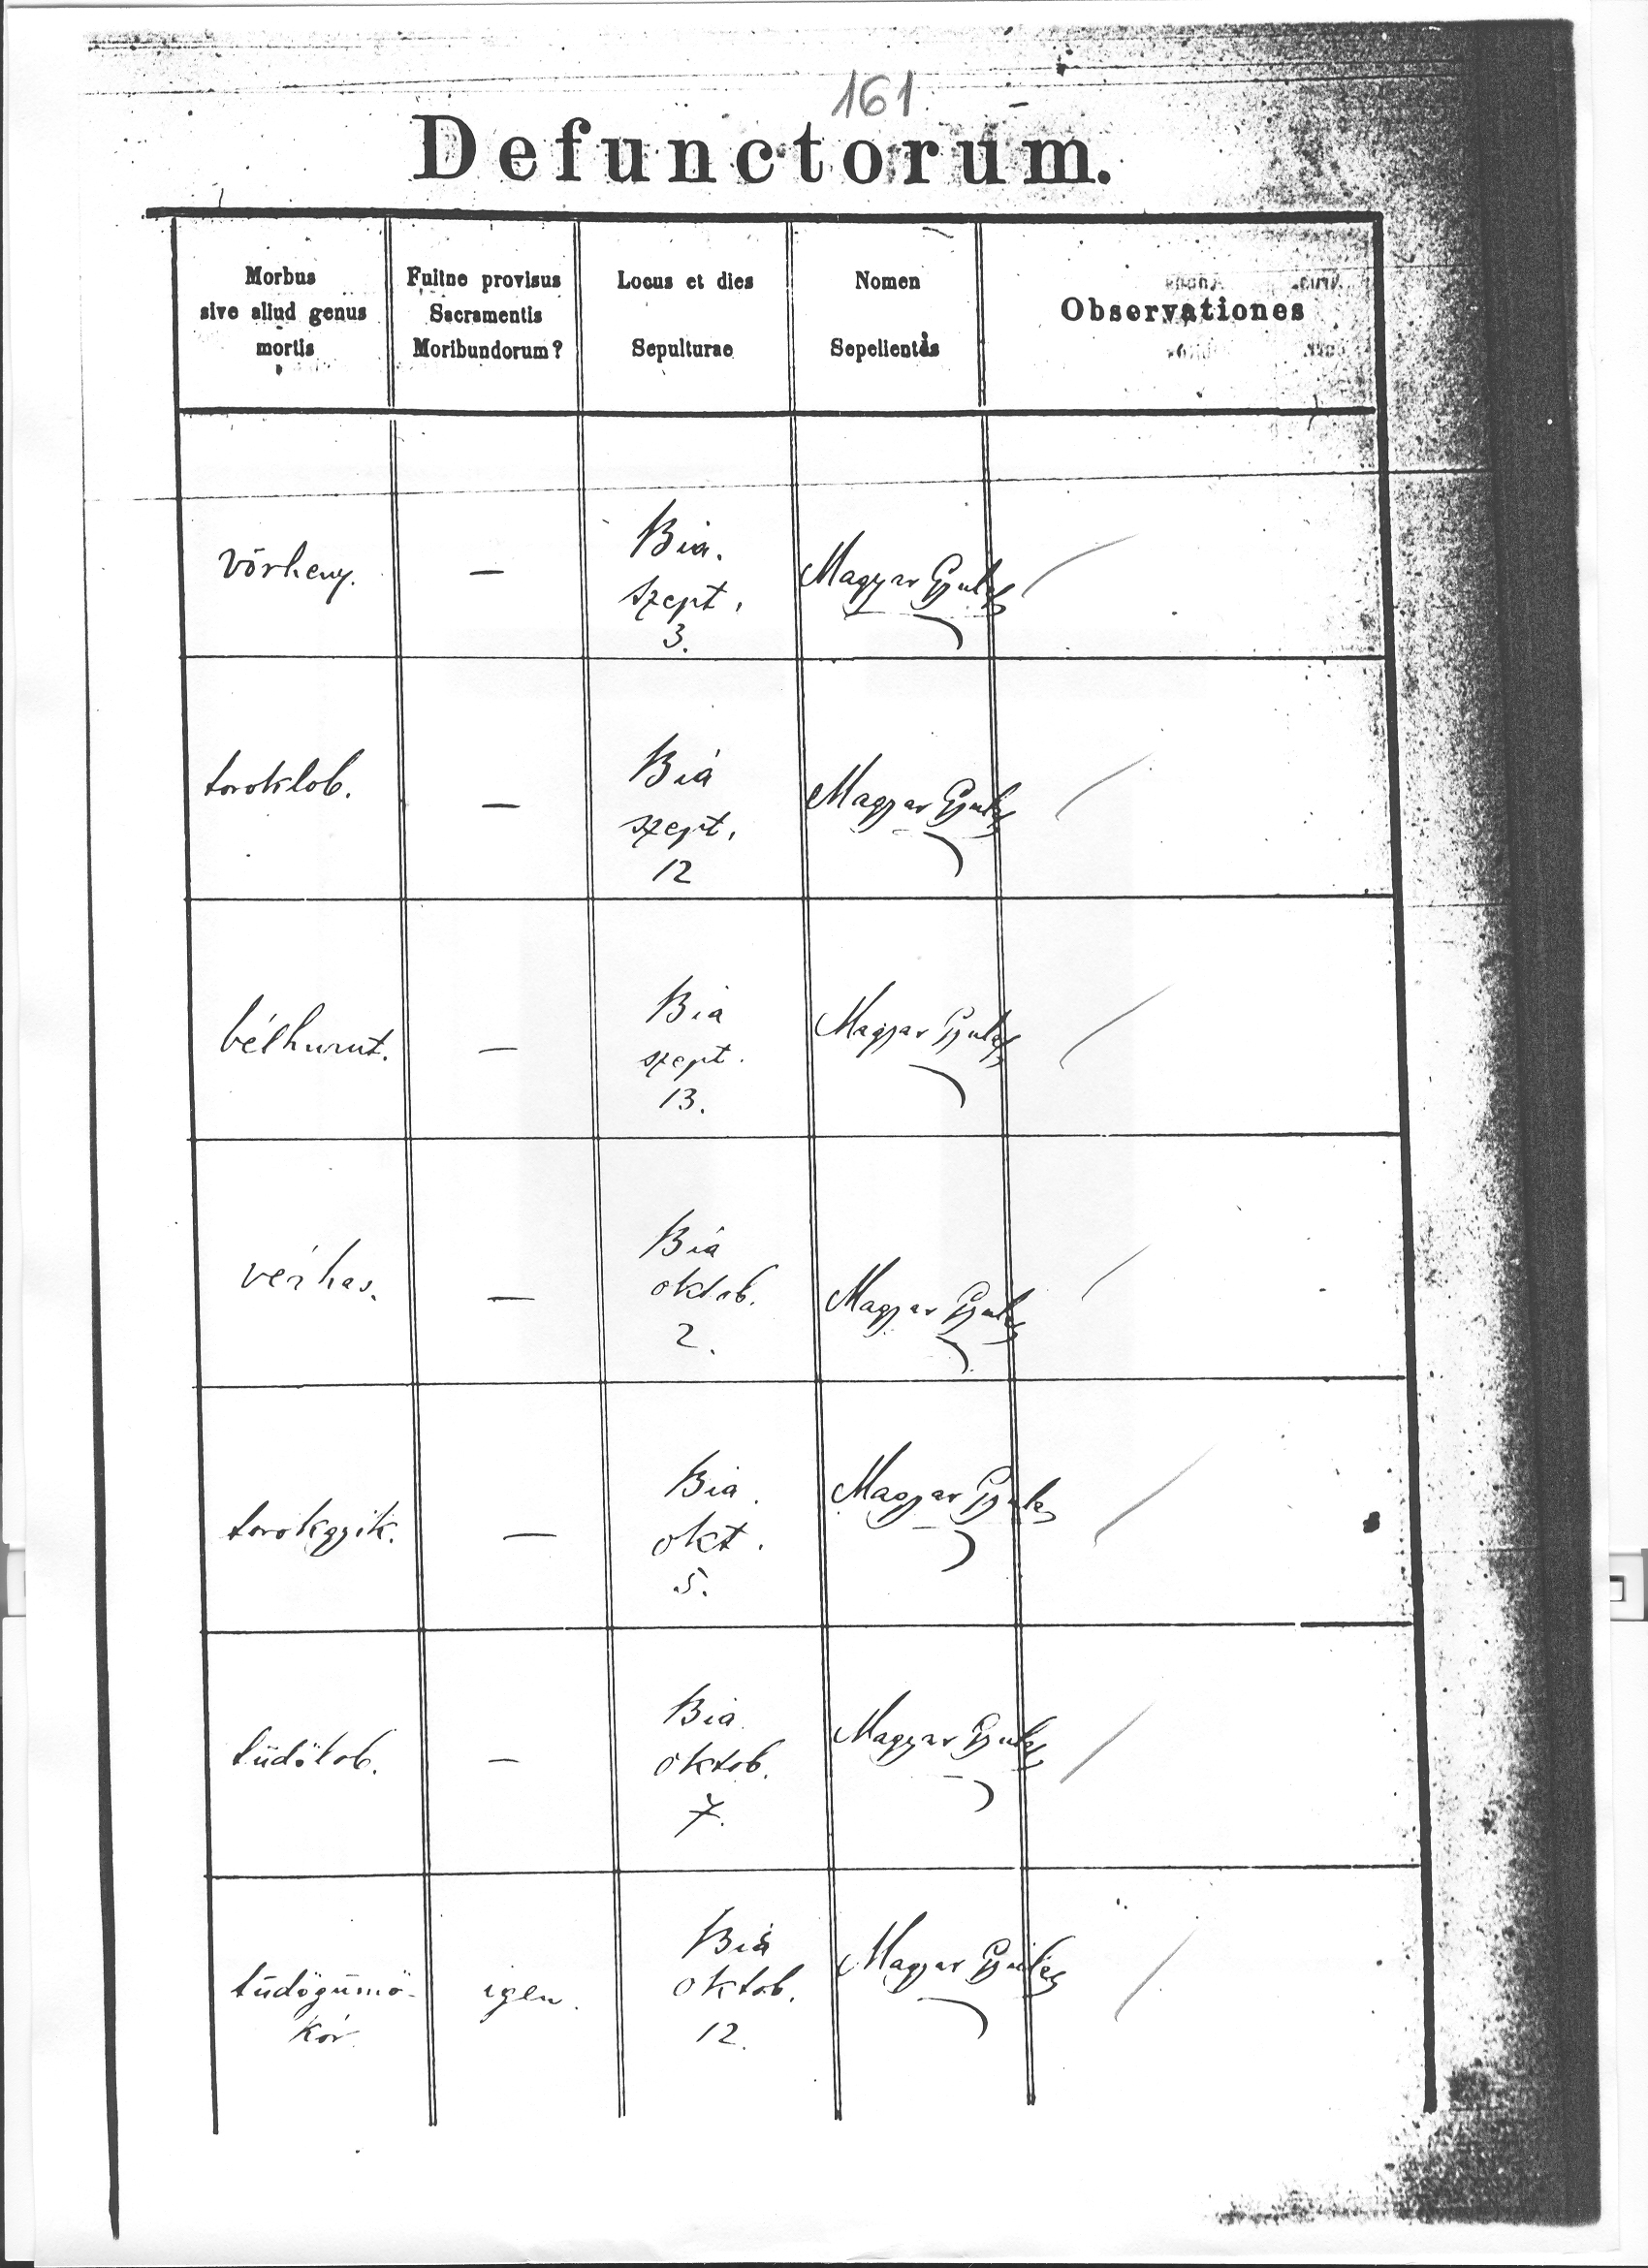 161
Defunctorum.
Morbus
sive aliud genus
mortis
Fuitne provisus
Sacramentis
Moribundorum?
Locus et dies
Sepulturae
Nomen
Sepelientis
Observationes
vörheny.
—
Bia.
szept.
3.
Magyar Gyula
toroklob.
—
Bia
szept.
12
Magyar Gyula
bélhurut.
—
Bia
szept.
13.
Magyar Gyula
vérhas.
—
Bia
oktob.
2.
Magyar Gyula
torokgyik.
—
Bia.
okt.
5.
Magyar Gyula
tüdőlob.
—
Bia
oktob.
7.
Magyar Gyula
tüdőgümő-
kór.
igen.
Bia
oktob.
12.
Magyar Gyula